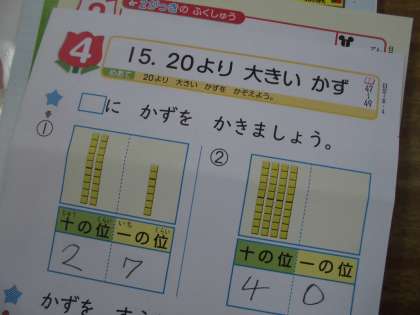 2がっきの ふくしゅう
4
15. 20より 大きい かず
めあて 20より 大きい かずを かぞえよう。
47
49
□に かずを かきましょう。
①
②
十の位 一の位
2 7
十の位 一の位
4 0